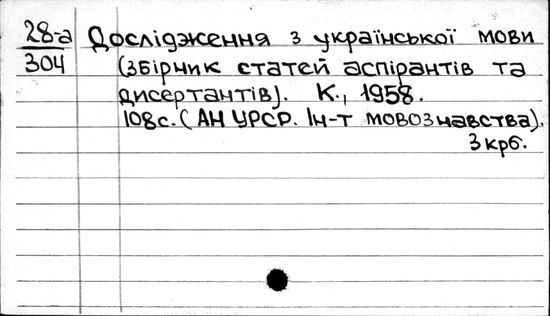 28-а Дослідження з української мови
304 (збірник статей аспірантів та
дисертантів). К., 1958.
108с. (АН УРСР. Ін-т мовознавства).
3 крб.